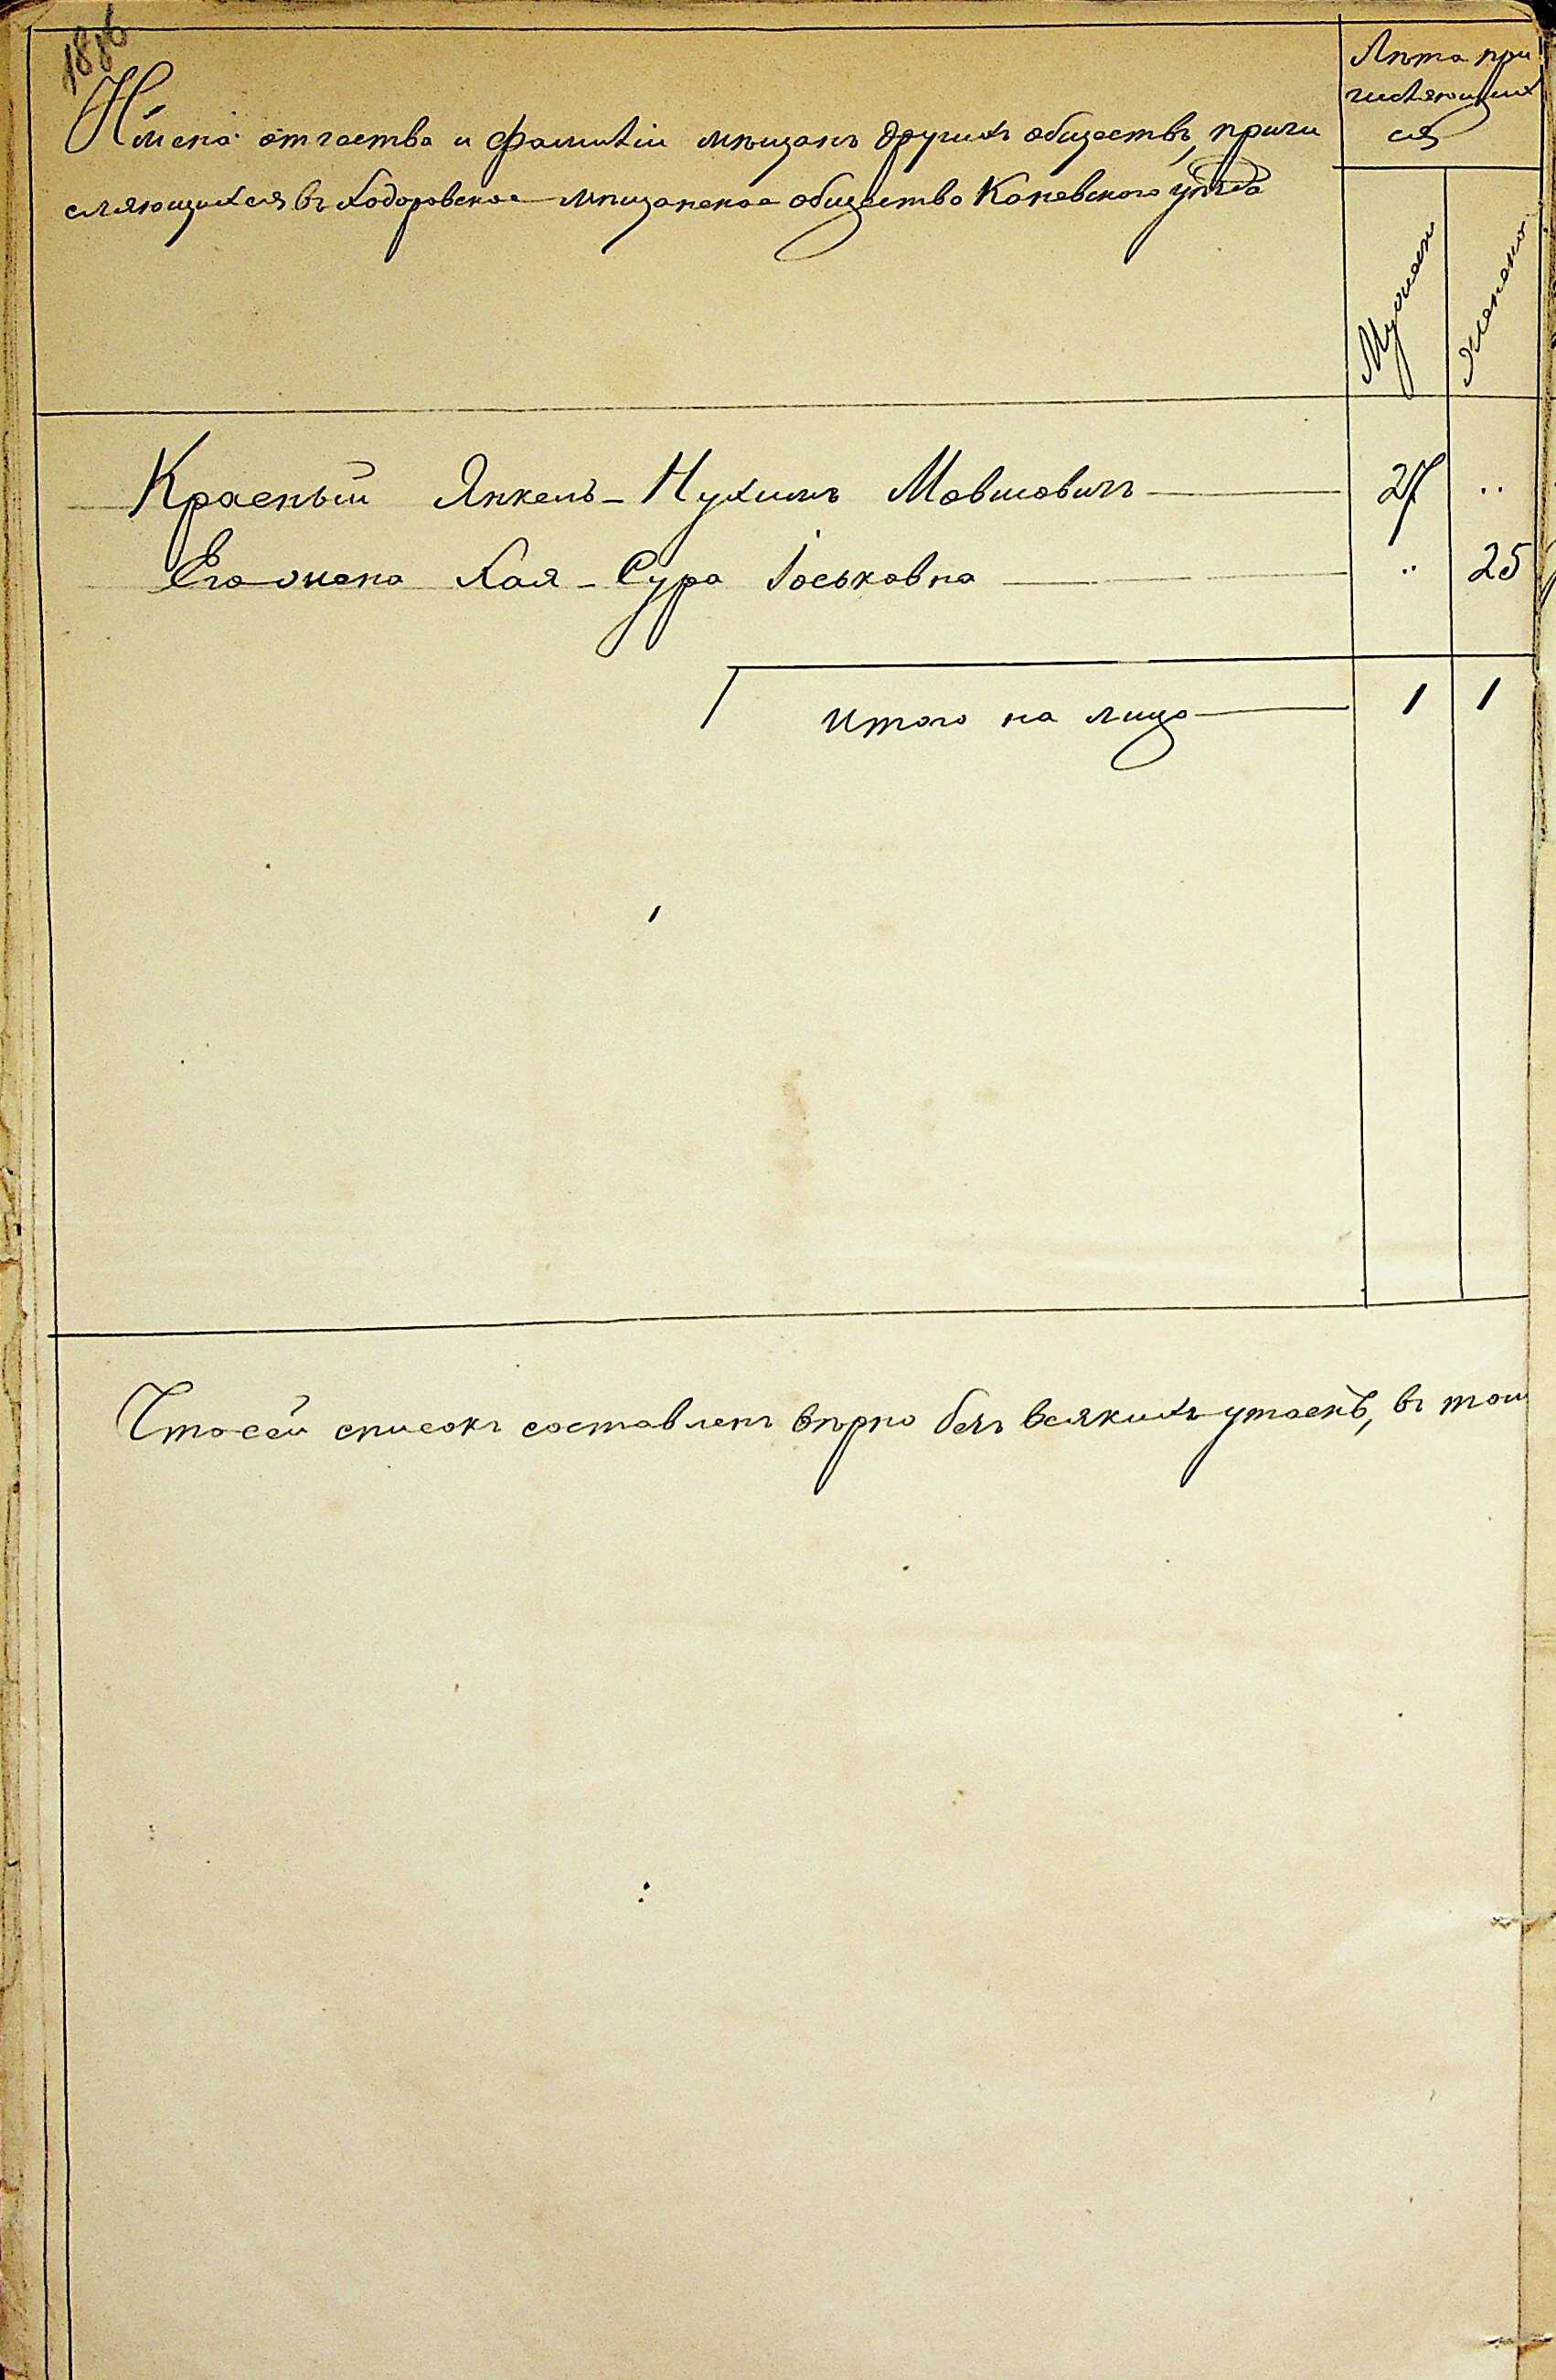 1886
Имена отчества и фамиліи мѣщанъ другихъ обществъ, причи
сляющихся въ Ходоровское мѣщанское общество Каневского уѣзда
Лѣта при
числяющих
ся
Мужск
Женско
Красный Янкель-Нухимъ Мовшовичъ 27 ..
Его жена Хая-Сура Іоськовна .. 25
Итого на лицо 1 1
Что сей списокъ составленъ вѣрно безъ всякихъ утаекъ, въ том